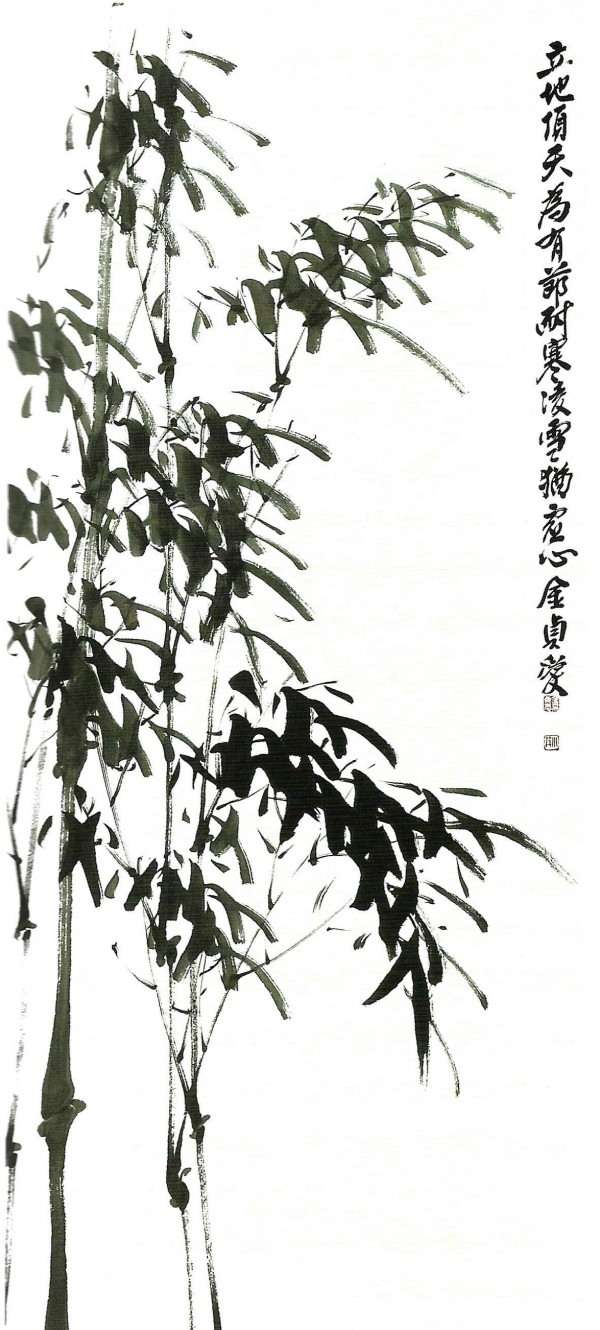 立地頂天為有節耐寒凌雪猶虛心金貞愛